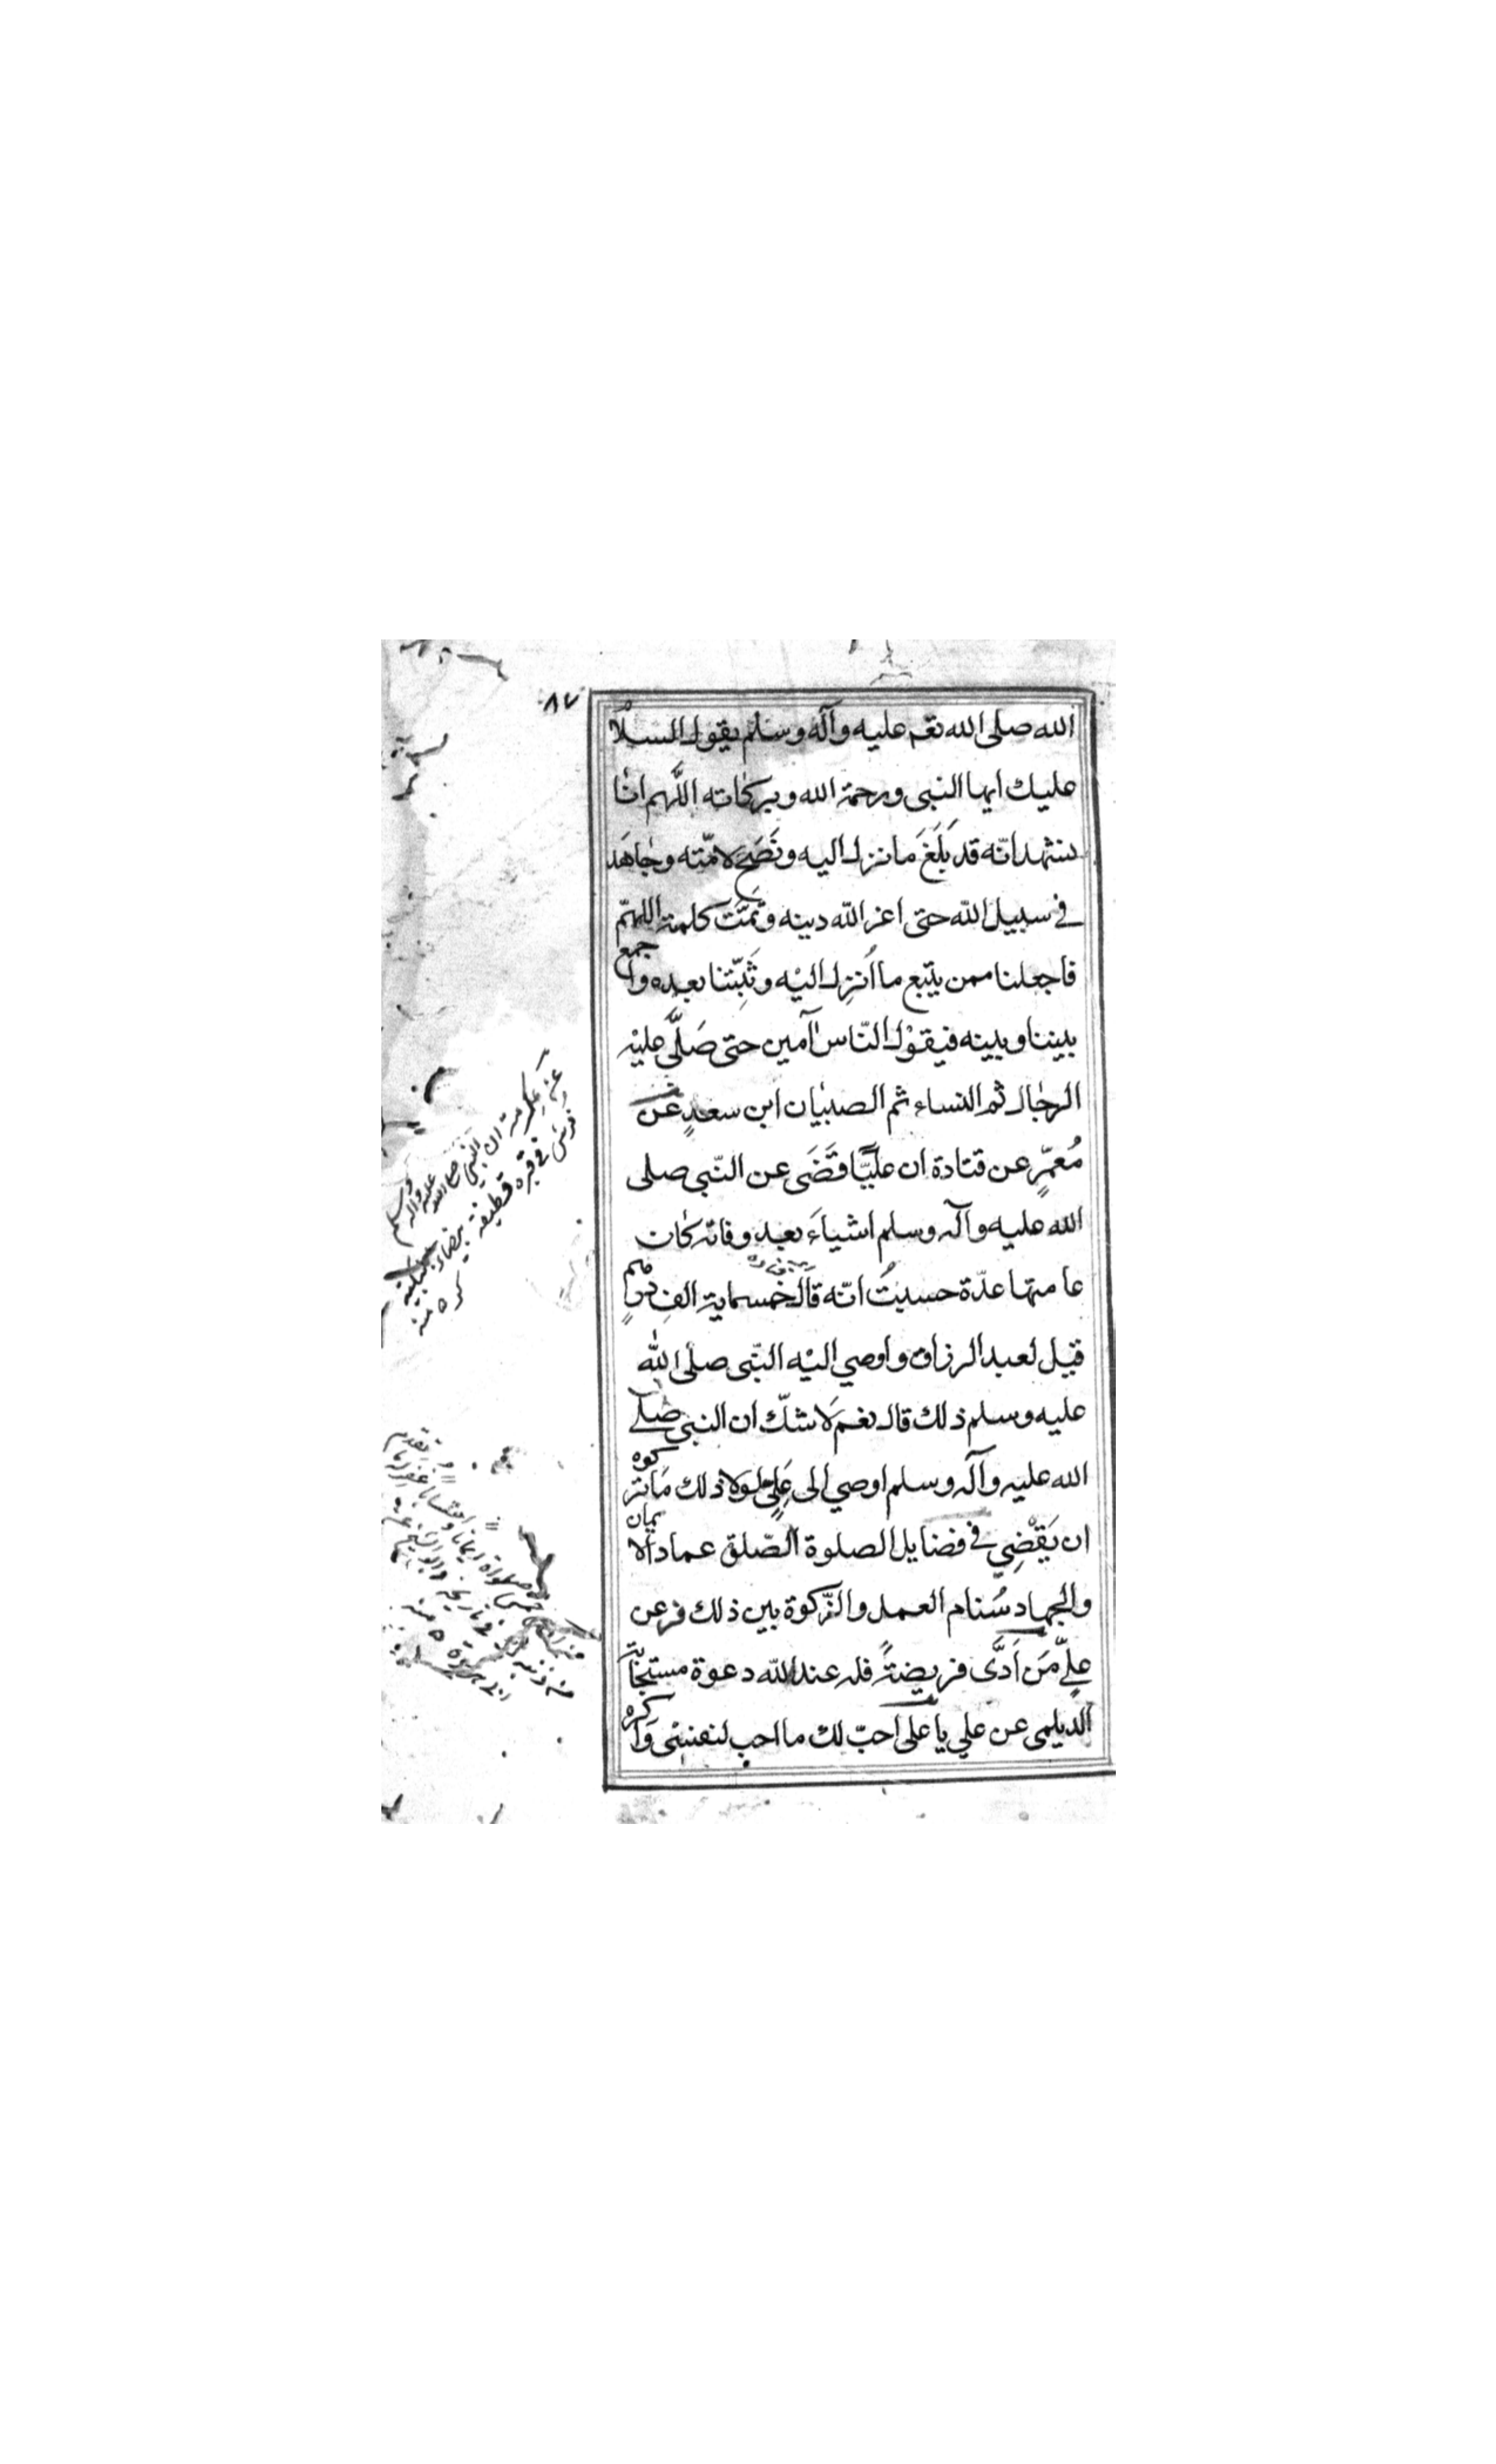 ٨٧
الله صلى الله تعم عليه وآله وسلم يقول السلا
عليك ايها النبى ورحمة الله وبركاته اللّهم انا
نشهد انّه قد بَلَغَ ما نزل اليه ونَصَحَ لامّته وجاهَد
فى سبيل اللّه حتى اعز اللّه دينه وتَمَّتْ كلمته اللهمّ
فاجعلنا ممن يتبع ما اُنزِل اليْه وثَبِّتنا بعده واجمع
بيننا وبينه فيقوْل النّاس آمين حتى صَلَّى عليْه
الرجال ثم النساء ثم الصبيان ابن سعدٍ عَن
مُعمّرٍ عن قتادة ان عليًّا قَضَى عن النّبى صلى
الله عليه وآله وسلم اشياءَ بعد وفاته كان
عامتها عدّة حسبْتُ انّه قال خمسماية الفِ درهمٍ
قيل لعبد الرزاق واوصي اليْه النّبى صلى اللّه
عليه وسلم ذلك قال نعم لَا شكّ ان النبى صلى
الله عليه وآله وسلم اوصي الى عَلِيٍّ لولا ذلك مَا تركوه
ان يَقْضِي فى فضايل الصلوة الصّلوة عماد الايمان
والجهاد سُنام العمل والزّكوة بين ذلك فر عن
علىّ مَن اَدَّى فريضةً فله عند اللّه دعوة مستجابة
الديلمى عن علي يا على احبّ لك ما احب لنفسْى وَاكره
عن عكرمة ان النبى صلى الله عليه واله وسلم
فرش فى قبره قطيفة بيضاء بعلبكية
منه